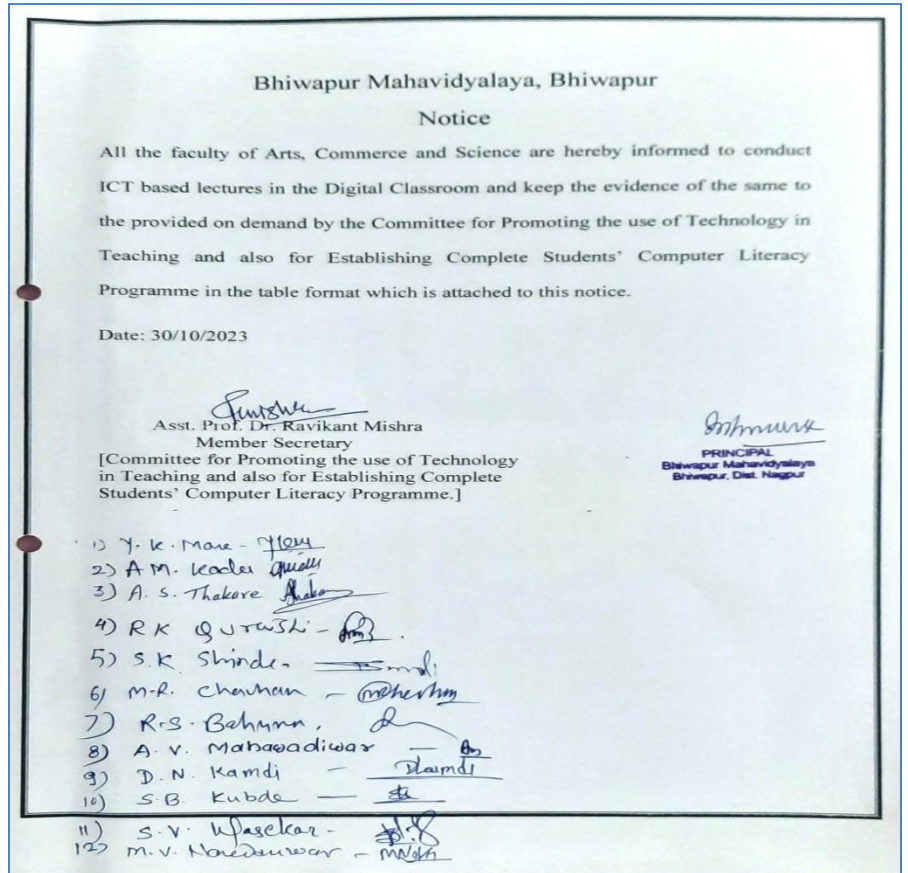 Bhiwapur Mahavidyalaya, Bhiwapur
Notice
All the faculty of Arts, Commerce and Science are hereby informed to conduct
ICT based lectures in the Digital Classroom and keep the evidence of the same to
the provided on demand by the Committee for Promoting the use of Technology in
Teaching and also for Establishing Complete Students' Computer Literacy
Programme in the table format which is attached to this notice.
Date: 30/10/2023
Asst. Prof. Dr. Ravikant Mishra
Member Secretary
[Committee for Promoting the use of Technology
in Teaching and also for Establishing Complete
Students' Computer Literacy Programme.]
PRINCIPAL
Bhiwapur Mahavidyalaya
Bhiwapur, Dist. Nagpur
1) Y. K. More -
2) A M.
3) A. S. Thakare
4) R K Quraishi -
5) S.K Shinde -
6) M.R. Chavhan -
7) R.S.
8) A. V. Mahawadiwar -
9) D. N. Kamdi -
10) S.B. Kubde -
11) S. V.
12) M. V.